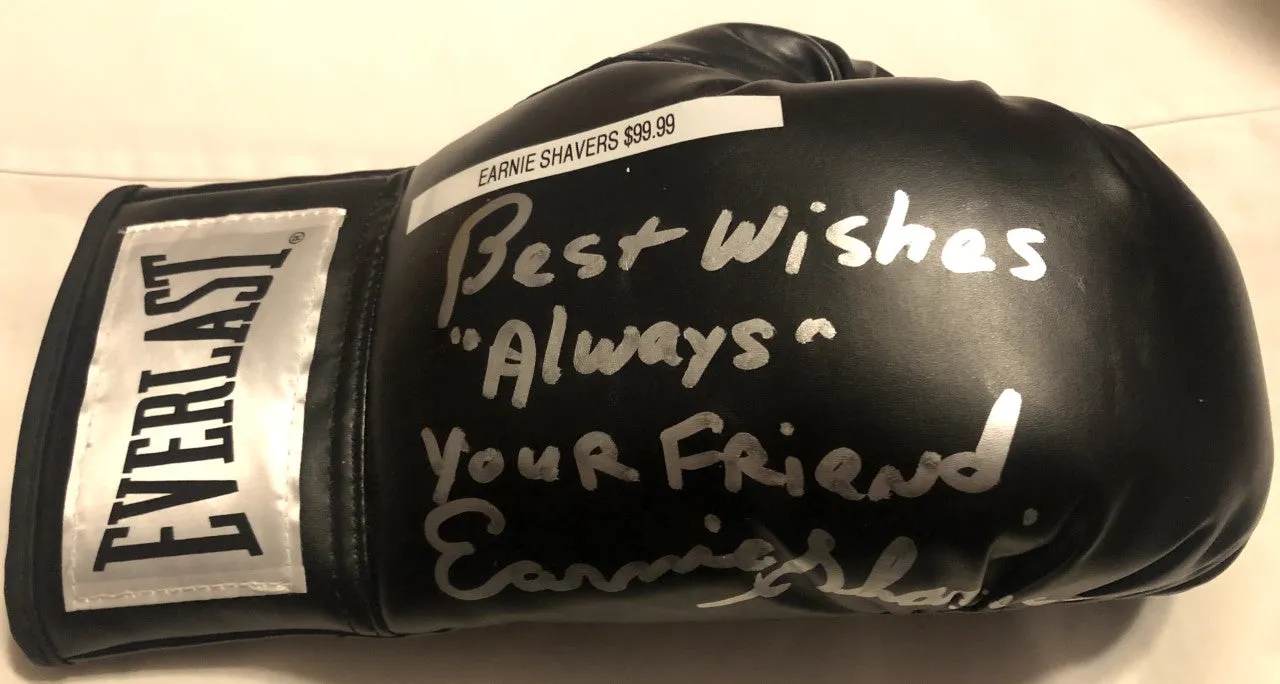 EVERLAST®
EARNIE SHAVERS $99.99
Best Wishes
"Always"
YOUR FRiEND
Earnie Shavers